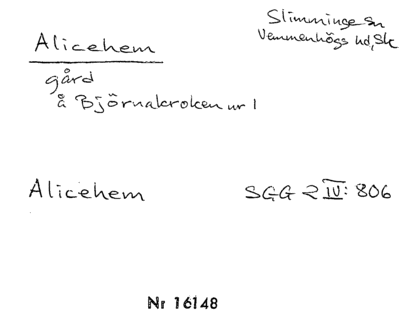 Alicehem
Slimminge sn
Vemmenhögs hd, Sk
gård
å Björnakroken nr 1
Alicehem SGG 2 IV: 806
Nr 16148